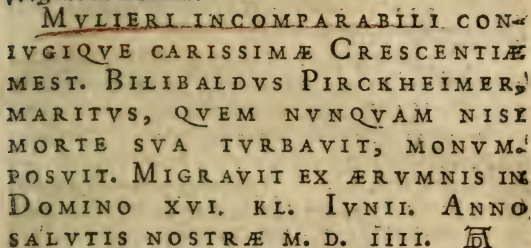 MVLIERI INCOMPARABILI CON-
IVGIQVE CARISSIMÆ CRESCENTIÆ
MEST. BILIBALDVS PIRCKHEIMER,
MARITVS, QVEM NVNQVAM NISI
MORTE SVA TVRBAVIT, MONVM.
POSVIT. MIGRAVIT EX ÆRVMNIS IN
DOMINO XVI. KL. IVNII. ANNO
SALVTIS NOSTRÆ M. D. IIII.